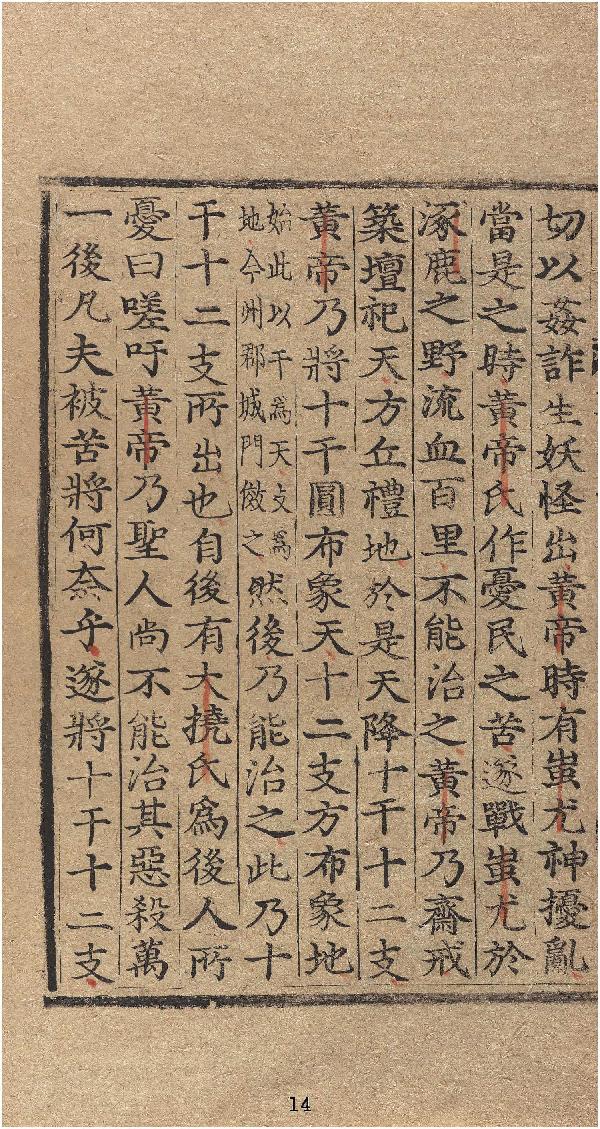 切以姦詐生妖怪出黃帝時有蚩尤神擾亂
當是之時黃帝氏作憂民之苦遂戰蚩尤於
涿鹿之野流血百里不能治之黃帝乃齋戒
築壇祀天方丘禮地於是天降十干十二支
黃帝乃將十干圓布象天十二支方布象地
始此以干為天支為
地今州郡城門倣之
然後乃能治之此乃十
干十二支所出也自後有大撓氏爲後人所
憂曰嗟吁黃帝乃聖人尚不能治其惡殺萬
一後凡夫被苦將何奈乎遂將十干十二支
14